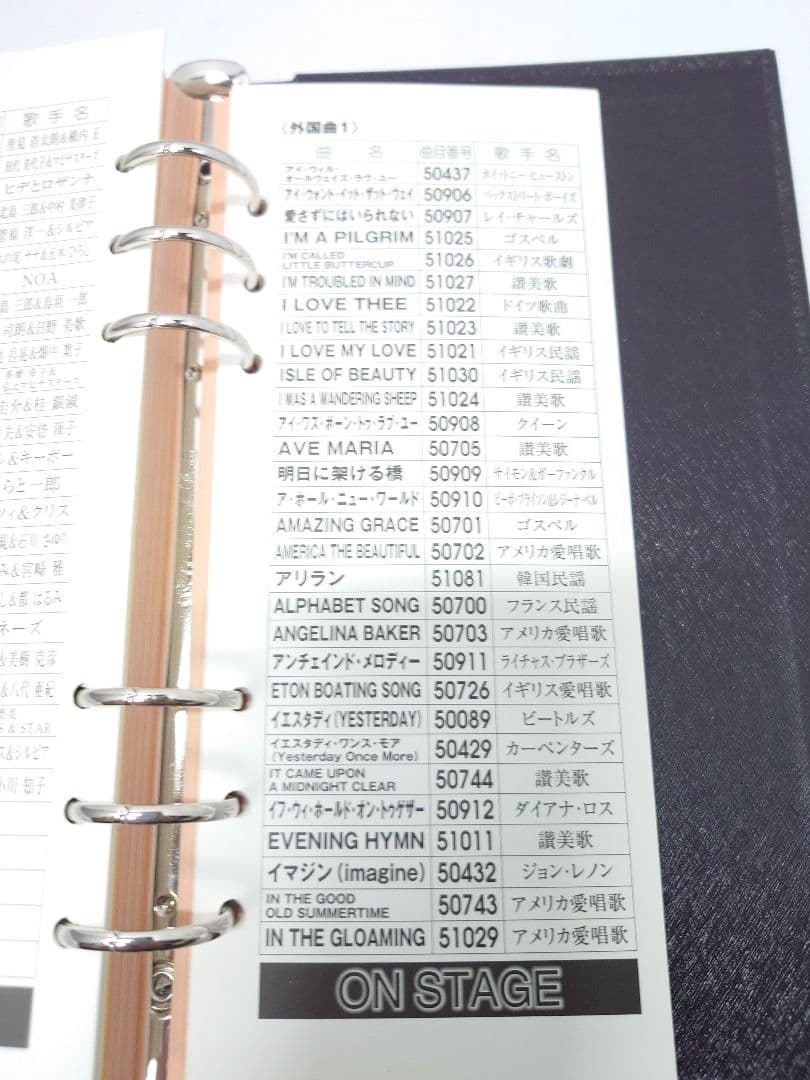 歌手名
ヒデとロザンナ
NOA
らと一郎
〈外国曲1〉
曲名 曲目番号 歌手名
アイ・ウィル・
オールウェイズ・ラヴ・ユー 50437 ホイットニー・ヒューストン
アイ・ウォント・イット・ザット・ウェイ 50906 バックストリート・ボーイズ
愛さずにはいられない 50907 レイ・チャールズ
I'M A PILGRIM 51025 ゴスペル
I'M CALLED
LITTLE BUTTERCUP 51026 イギリス歌劇
I'M TROUBLED IN MIND 51027 讃美歌
I LOVE THEE 51022 ドイツ歌曲
I LOVE TO TELL THE STORY 51023 讃美歌
I LOVE MY LOVE 51021 イギリス民謡
ISLE OF BEAUTY 51030 イギリス民謡
I WAS A WANDERING SHEEP 51024 讃美歌
アイ・ワズ・ボーン・トゥ・ラブ・ユー 50908 クイーン
AVE MARIA 50705 讃美歌
明日に架ける橋 50909 サイモン&ガーファンクル
ア・ホール・ニュー・ワールド 50910 ピーボ・ブライソン&レジーナ・ベル
AMAZING GRACE 50701 ゴスペル
AMERICA THE BEAUTIFUL 50702 アメリカ愛唱歌
アリラン 51081 韓国民謡
ALPHABET SONG 50700 フランス民謡
ANGELINA BAKER 50703 アメリカ愛唱歌
アンチェインド・メロディー 50911 ライチャス・ブラザーズ
ETON BOATING SONG 50726 イギリス愛唱歌
イエスタディ(YESTERDAY) 50089 ビートルズ
イエスタディ・ワンス・モア
(Yesterday Once More) 50429 カーペンターズ
IT CAME UPON
A MIDNIGHT CLEAR 50744 讃美歌
イフ・ウィ・ホールド・オン・トゥゲザー 50912 ダイアナ・ロス
EVENING HYMN 51011 讃美歌
イマジン(imagine) 50432 ジョン・レノン
IN THE GOOD
OLD SUMMERTIME 50743 アメリカ愛唱歌
IN THE GLOAMING 51029 アメリカ愛唱歌
ON STAGE